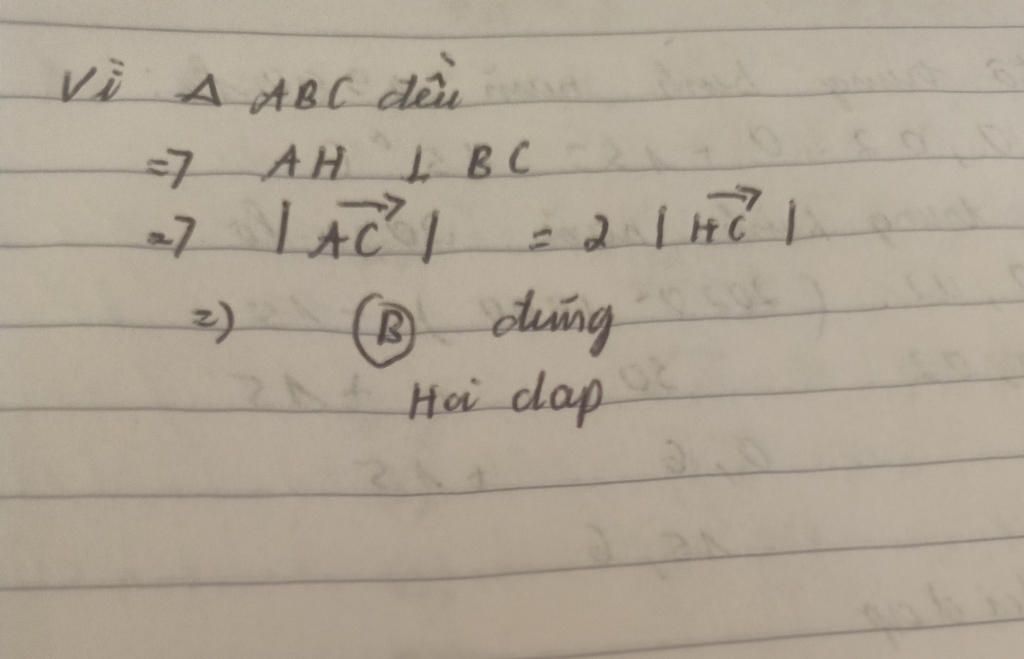 Vì Δ ABC đều
=> AH ⊥ BC
=> |AC→| = 2 |HC→|
=> B đúng
Hoi dap